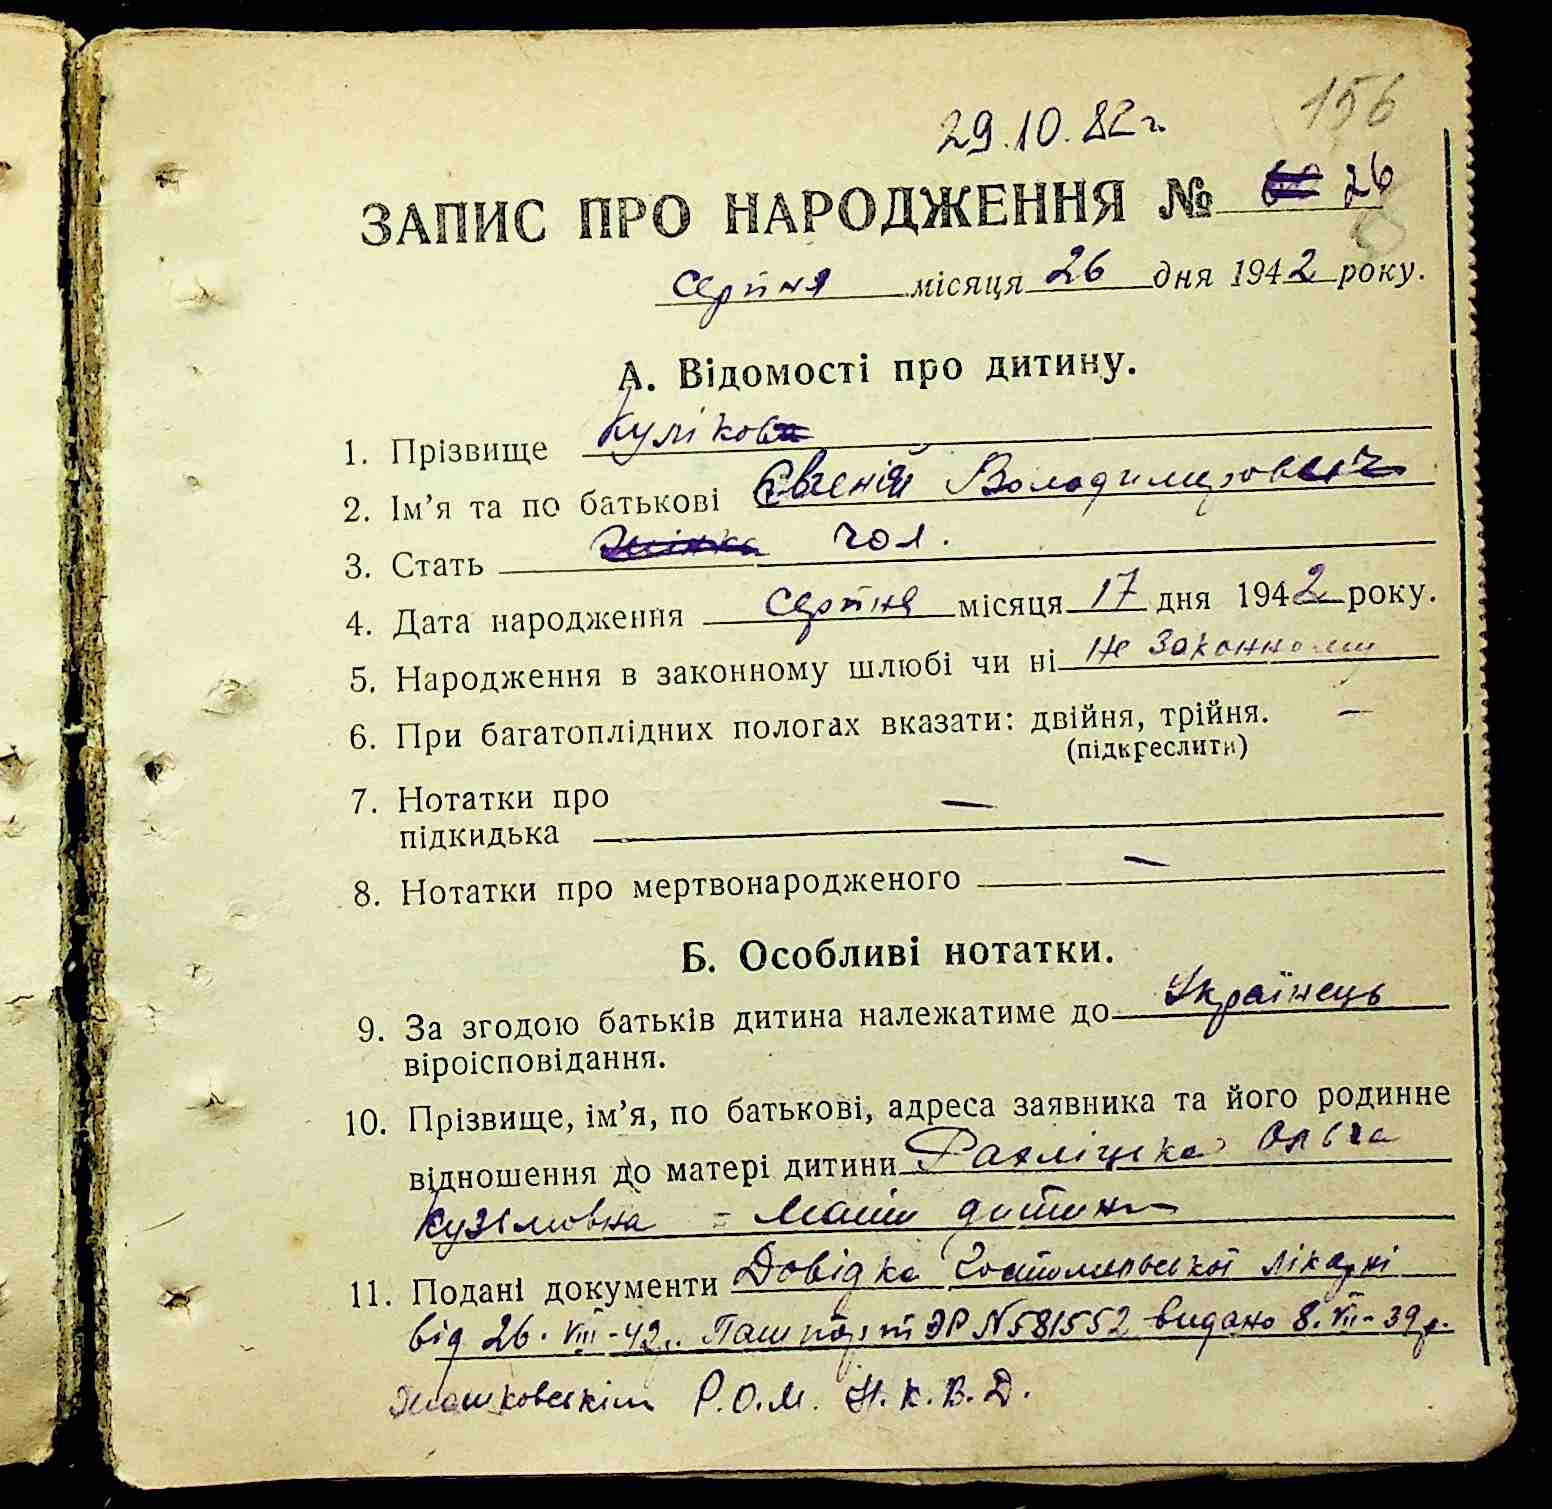 156
29.10.82 г.
ЗАПИС ПРО НАРОДЖЕННЯ № 26
Серпня місяця 26 дня 1942 року.
А. Відомості про дитину.
1. Прізвище Куліков
2. Ім’я та по батькові Євгеній Володимирович
3. Стать чол.
4. Дата народження Серпня місяця 17 дня 1942 року.
5. Народження в законному шлюбі чи ні Не законному
6. При багатоплідних пологах вказати: двійня, трійня. —
(підкреслити)
7. Нотатки про
підкидька —
8. Нотатки про мертвонародженого —
Б. Особливі нотатки.
9. За згодою батьків дитина належатиме до Українець
віроісповідання.
10. Прізвище, ім’я, по батькові, адреса заявника та його родинне
відношення до матері дитини Ольга
Кузьмовна - мати дитини
11. Подані документи Довідка Гостомельської лікарні
від 26.VIII-42. Пашпорт ЭР N 581552 видано 8.VII-39р.
Р.О.М. Н.К.В.Д.